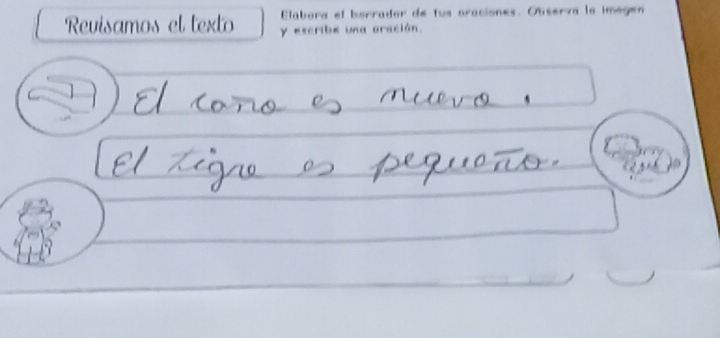 Revisamos el texto
Elabora el borrador de tus oraciones. Observa la imagen
y escribe una oración.
El caño es nuevo.
El tigre es pequeño.